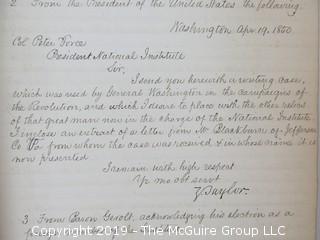 2 From the President of the United States the following.
Washington Apr. 19. 1850
Col Peter Force
President National Institute
Sir,
I send you herewith a writing case,
which was used by General Washington in the campaigns of
the Revolution, and which I desire to place with the other relics
of that great man now in the charge of the National Institute.
I enclose an extract of a letter from Mr Blackburn of Jefferson
Co Va. from whom the case was received & in whose name it is
now presented
I remain with high respect
Yr mo obt servt
Z Taylor.
3 From Baron Gerolt, acknowledging his election as a
Copyright 2019 - The McGuire Group LLC